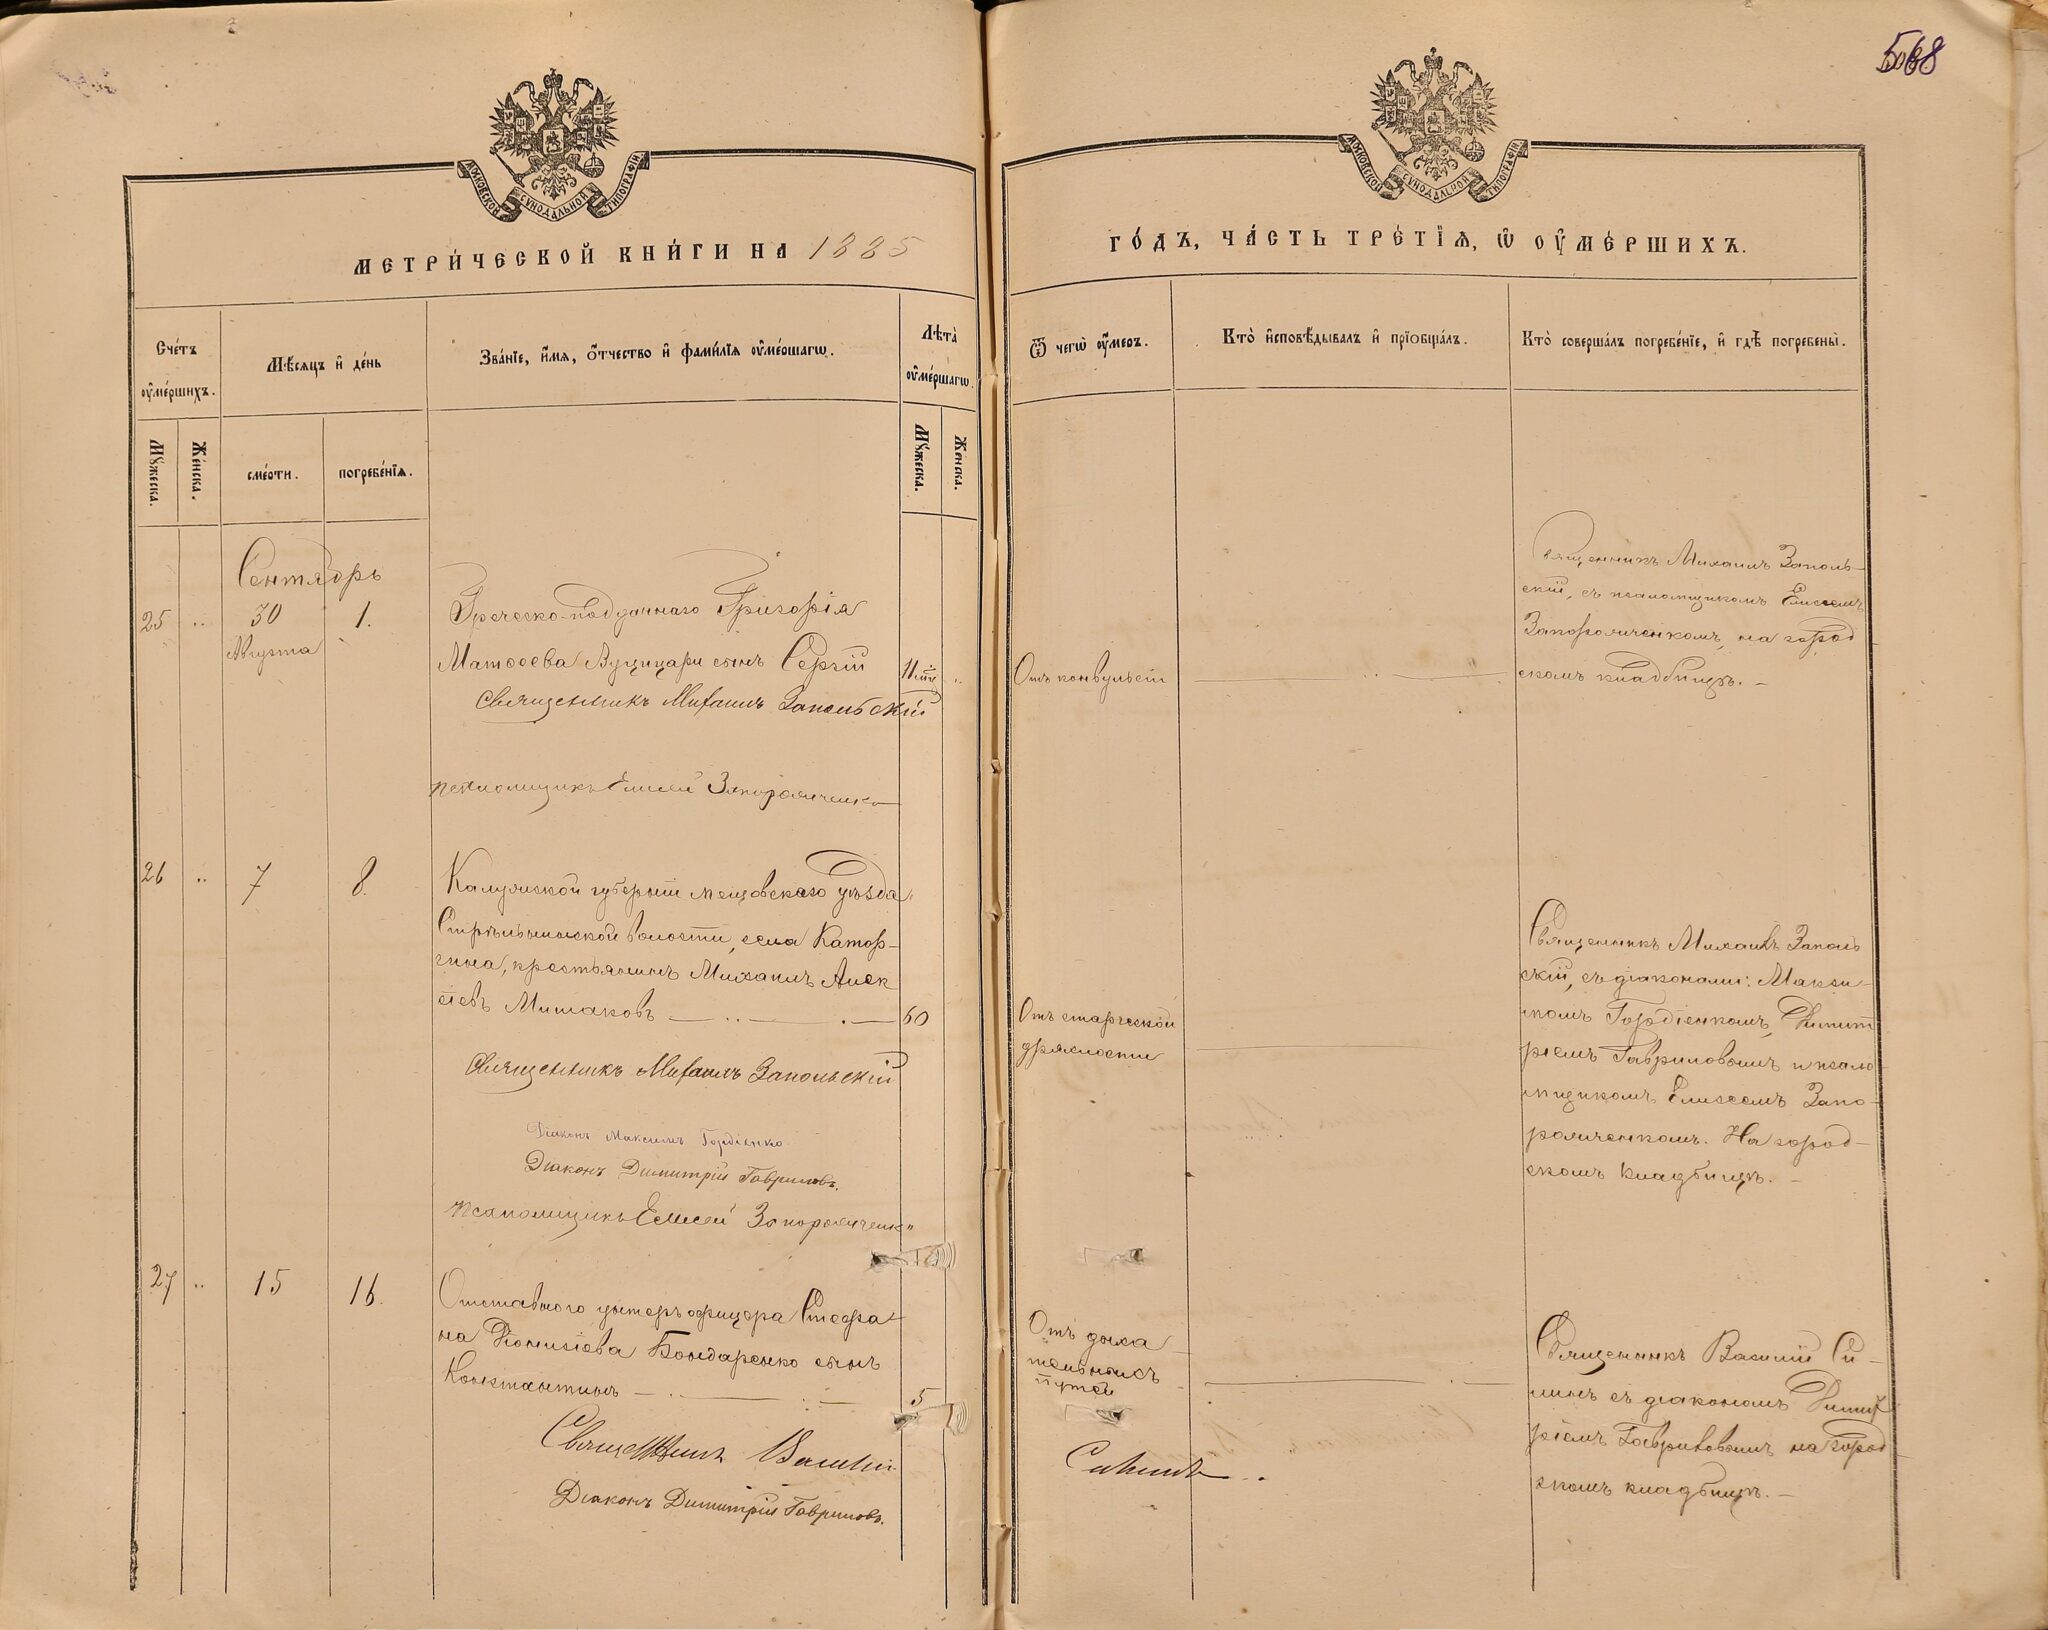 568
МОСКОВСКОЙ СѴНОДАЛЬНОЙ ТИПОГРАФІИ
МОСКОВСКОЙ СѴНОДАЛЬНОЙ ТИПОГРАФІИ
МЕТРИ́ЧЕСКОЙ КНИ́ГИ НА 1885
ГО́ДЪ, ЧА́СТЬ ТРЕ́ТІѦ, Ѡ҆ ОУ҆МЕ́РШИХЪ.
Сче́тъ оу҆ме́ршихъ.
Мѣ́сѧцъ и҆ де́нь
Зва́нїе, и҆́мѧ, ѻ҆́тчество и҆ фами́лїѧ оу҆ме́ршагѡ.
Лѣта̀ оу҆ме́ршагѡ.
Ѿ чегѡ̀ оу҆́меръ.
Кто̀ и҆сповѣ́дывалъ и҆ прїобща́лъ.
Кто̀ соверша́лъ погребе́нїе, и҆ гдѣ̀ погребены̀.
Мꙋ́жеска.
Же́нска.
сме́рти.
погребе́нїѧ.
Мꙋ́жеска.
Же́нска.
Сентябрь
25 .. 30 1.
Августа
Греческо-подданнаго Григорія
Матѳеева Вуцинари сынъ Сергій
Священникъ Михаилъ Запольскій
псаломщикъ Елисей Запорожченко
Отъ конвульсій
Священникъ Михаилъ Заполь-
скій, съ псаломщикомъ Елисеемъ
Запорожченкомъ, на город
скомъ кладбищѣ. —
26 .. 7 8.
Калужской губерніи Мещовскаго уѣзда
волости, села Катор-
гина, крестьянинъ Михаилъ Алек
сѣевъ Мишаковъ — .. — . — 60
Священникъ Михаилъ Запольскій
Діаконъ Максимъ Гордіенко
Діаконъ Димитрій Гавриловъ.
псаломщикъ Елисей Запорожченко
Отъ старческой
дряхлости
Священникъ Михаилъ Заполь
скій, съ діаконами: Макси-
момъ Гордіенкомъ, Димит
ріемъ Гавриловымъ и псало
мщикомъ Елисеемъ Запо-
рожченкомъ. На город-
скомъ кладбищѣ. —
27 .. 15 16.
Отставного унтеръ офицера Стефа-
на Діонисіева Бондаренко сынъ
Константинъ — 5
Священникъ Василій Силинъ
Діаконъ Димитрій Гавриловъ.
Отъ дыха
тельныхъ
путей
Священникъ Василій Си-
линъ съ діакономъ Димит
ріемъ Гавриловымъ на город
скомъ кладбищѣ. —